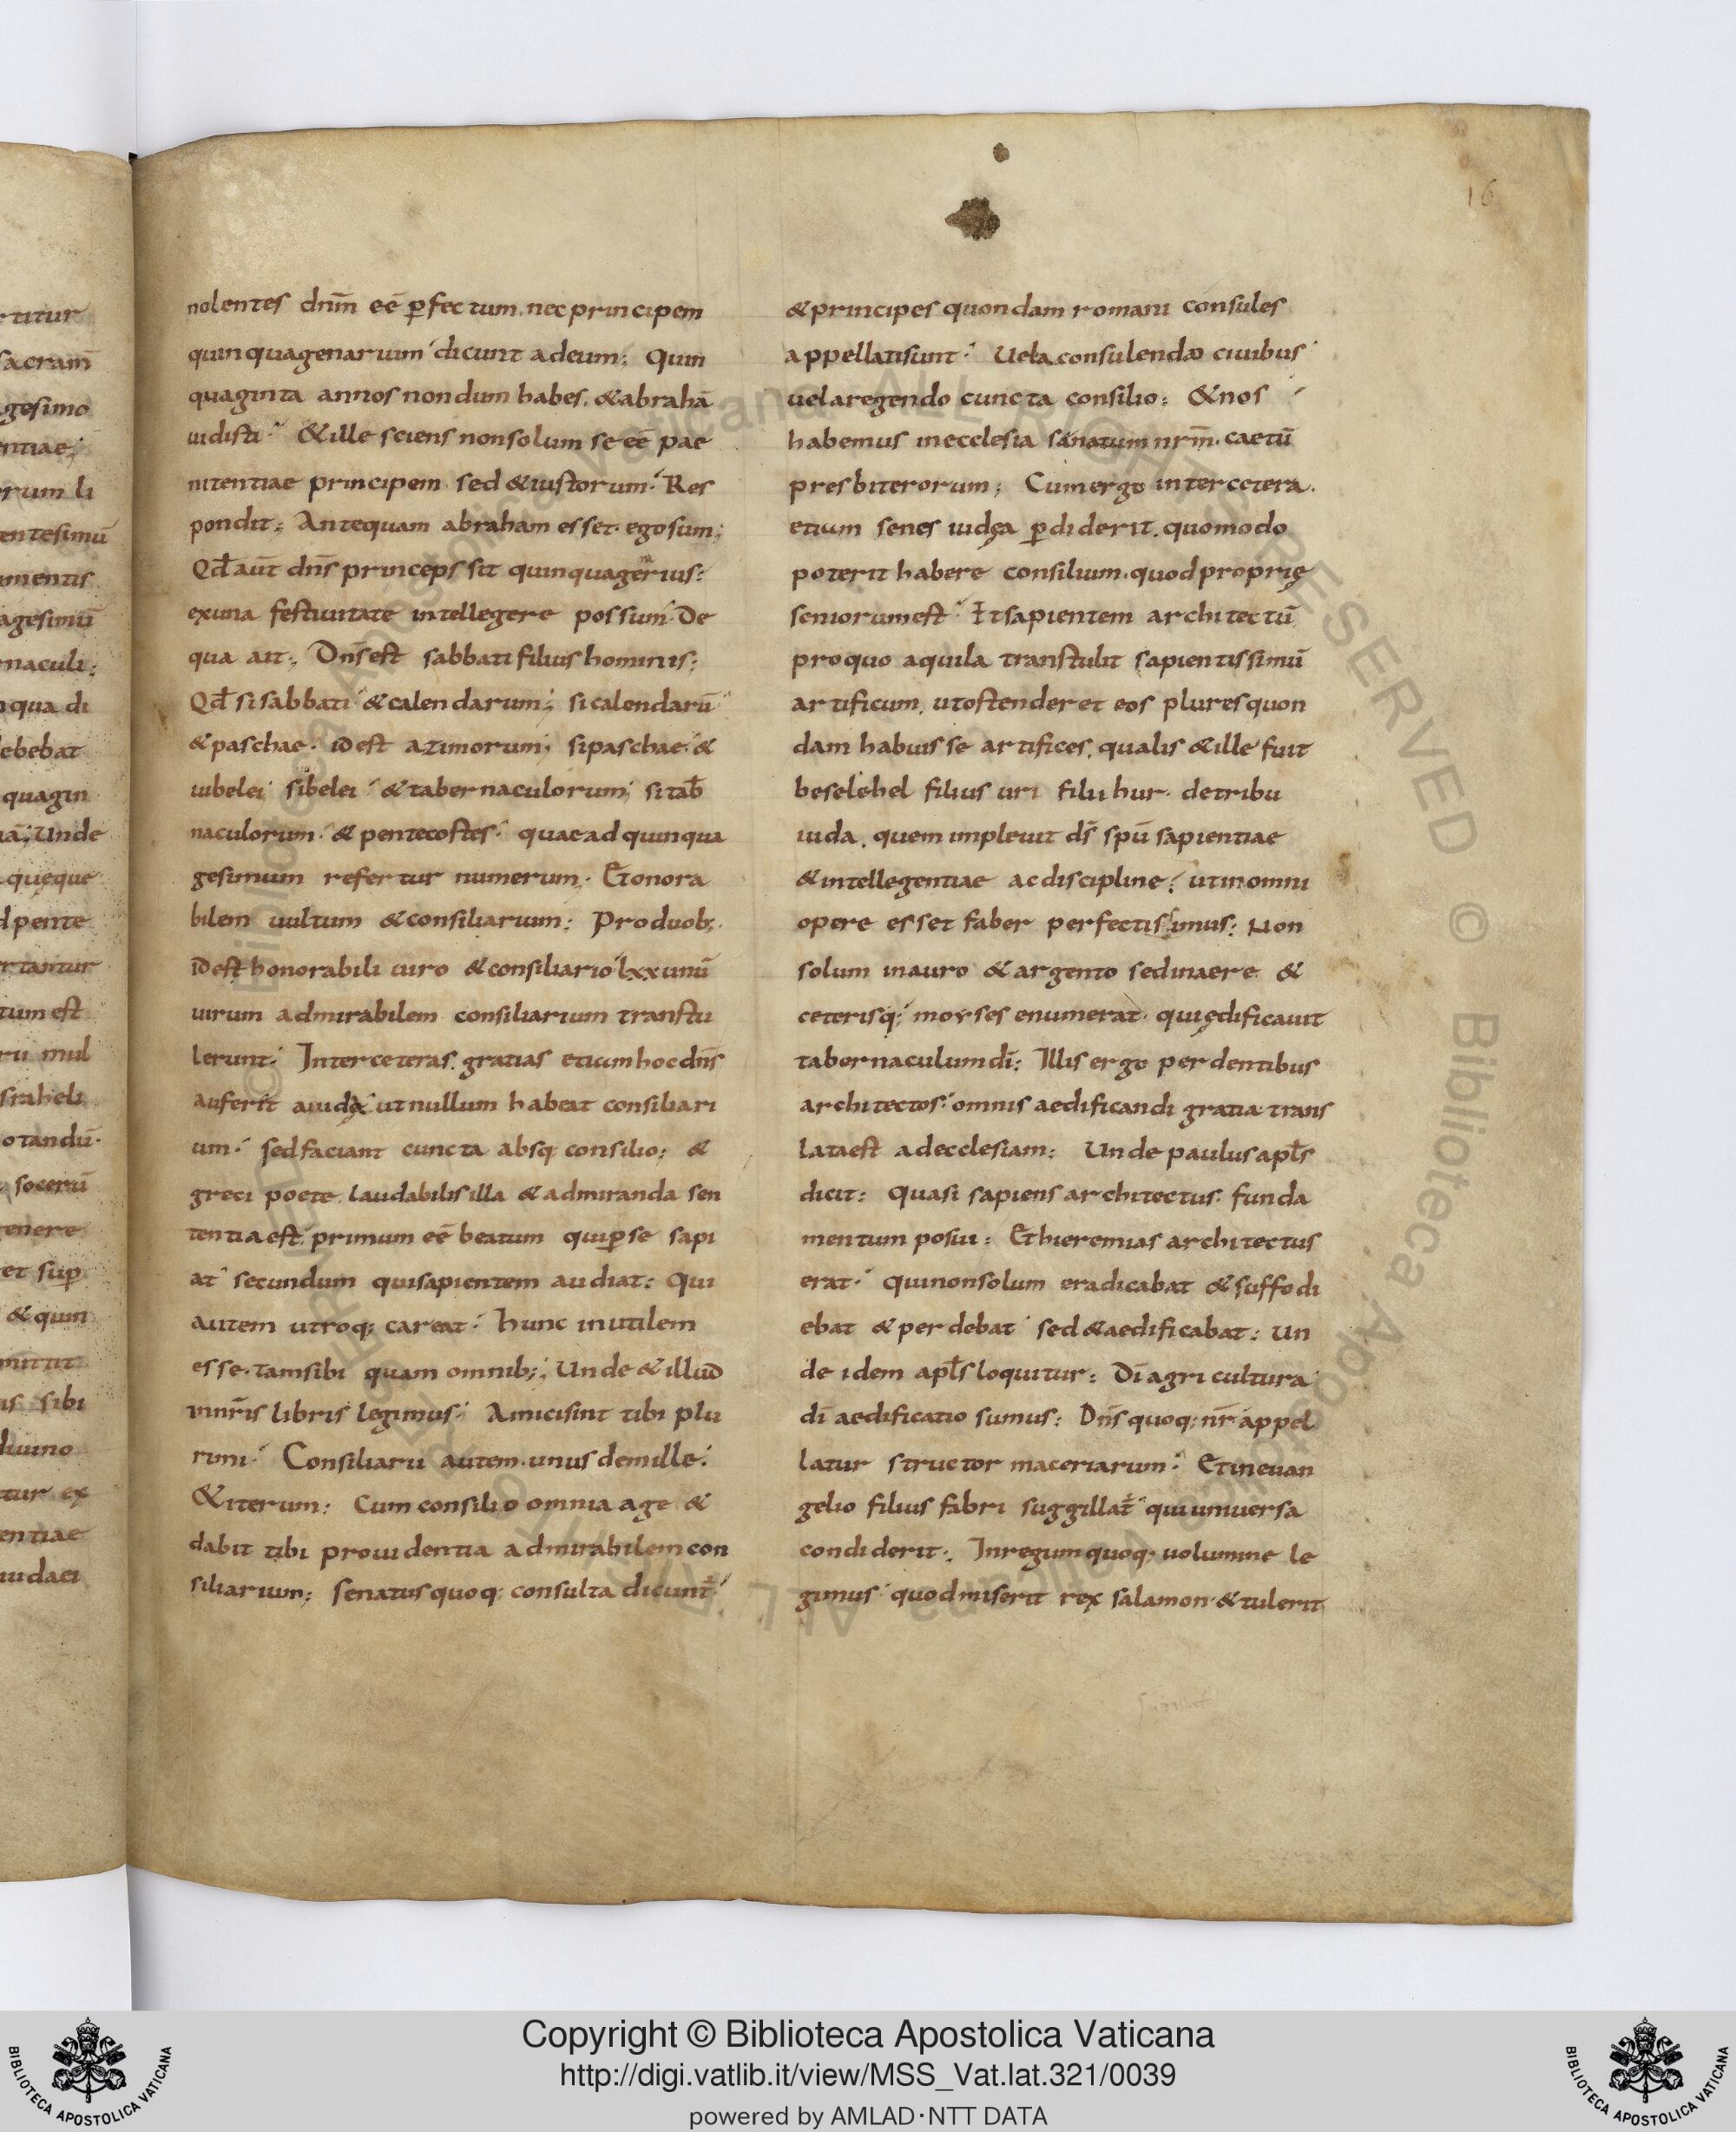 nolentes dnm̄ eē ꝑfectum. nec principem
quinquagenarium dicunt ad eum; Quin
quaginta annos nondum habes. & abrahā
uidisti. & ille sciens non solum se eē pae
nitentiae principem sed & iustorum. Res
pondit; Antequam abraham esset. ego sum;
Qđ aut̄ dn̄s princeps sit quinquagenarius:
ex una festiuitate intellegere possum. De
qua ait; Dn̄s est sabbati filius hominis;
Qđ si sabbati & calendarum; si calendarū
& paschae. id est azimorum; si paschae. &
iubelei si belei & tabernaculorum; si tab̄
naculorum. & pentecostes. quae ad quinqua
gesimum refertur numerum. Et onora
bilem uultum & consiliarium: Pro duob;
id est honorabili uiro & consiliario lxx unū
uirum admirabilem consiliarium transtu
lerunt. Inter ceteras gratias etiam hoc dn̄s
auferit a iudęa ut nullum habeat consiliari
um. sed faciant cuncta absq; consilio: &
greci poete laudabilis illa & admiranda sen
tentia est. primum eē beatum qui ꝑ se sapi
at secundum qui sapientem audiat: Qui
autem utroq; careat. hunc inutilem
esse. tam sibi quam omnib;; Unde & illud
in nr̄is libris legimus: Amici sint tibi plu
rimi. Consiliarii autem. unus de mille:
& iterum: Cum consilio omnia age &
dabit tibi prouidentia admirabilem con
siliarium; senatus quoq; consulta dicunt̄.
& principes quondam romani consules
appellati sunt. Uel a consulendo ciuibus
uel a regendo cuncta consilio: & nos
habemus in ecclesia sanatum nr̄m. caetū
presbiterorum; Cum ergo inter cetera.
etiam senes iudęa ꝑdiderit. quomodo
poterit habere consilium. quod proprię
seniorum est. Et sapientem architectū
pro quo aquila transtulit sapientissimū
artificum. ut ostenderet eos plures quon
dam habuisse artifices. qualis & ille fuit
beselehel filius uri filii hur. de tribu
iuda. quem impleuit dš spū sapientiae
& intellegentiae ac discipline; ut in omni
opere esset faber perfectissimus: Non
solum in auro & argento sed in aere &
ceterisq; moyses enumerat. qui ędificauit
tabernaculum dī: Illis ergo perdentibus
architectos. omnis aedificandi gratia trans
lata est ad ecclesiam: Unde paulus apl̄s
dicit: Quasi sapiens architectus. funda
mentum posui: Et hieremias architectus
erat. qui non solum eradicabat & suffodi
ebat & perdebat sed & aedificabat: Un
de idem apl̄s loquitur: Dī agri cultura
dī aedificatio sumus: Dn̄s quoq; nr̄ appel
latur structor maceriarum. Et in euan
gelio filius fabri suggillat̄ qui uniuersa
condiderit. In regum quoq; uolumine le
gimus quod miserit rex salamon & tulerit
16
Copyright © Biblioteca Apostolica Vaticana
http://digi.vatlib.it/view/MSS_Vat.lat.321/0039
powered by AMLAD·NTT DATA
BIBLIOTECA APOSTOLICA VATICANA
BIBLIOTECA APOSTOLICA VATICANA